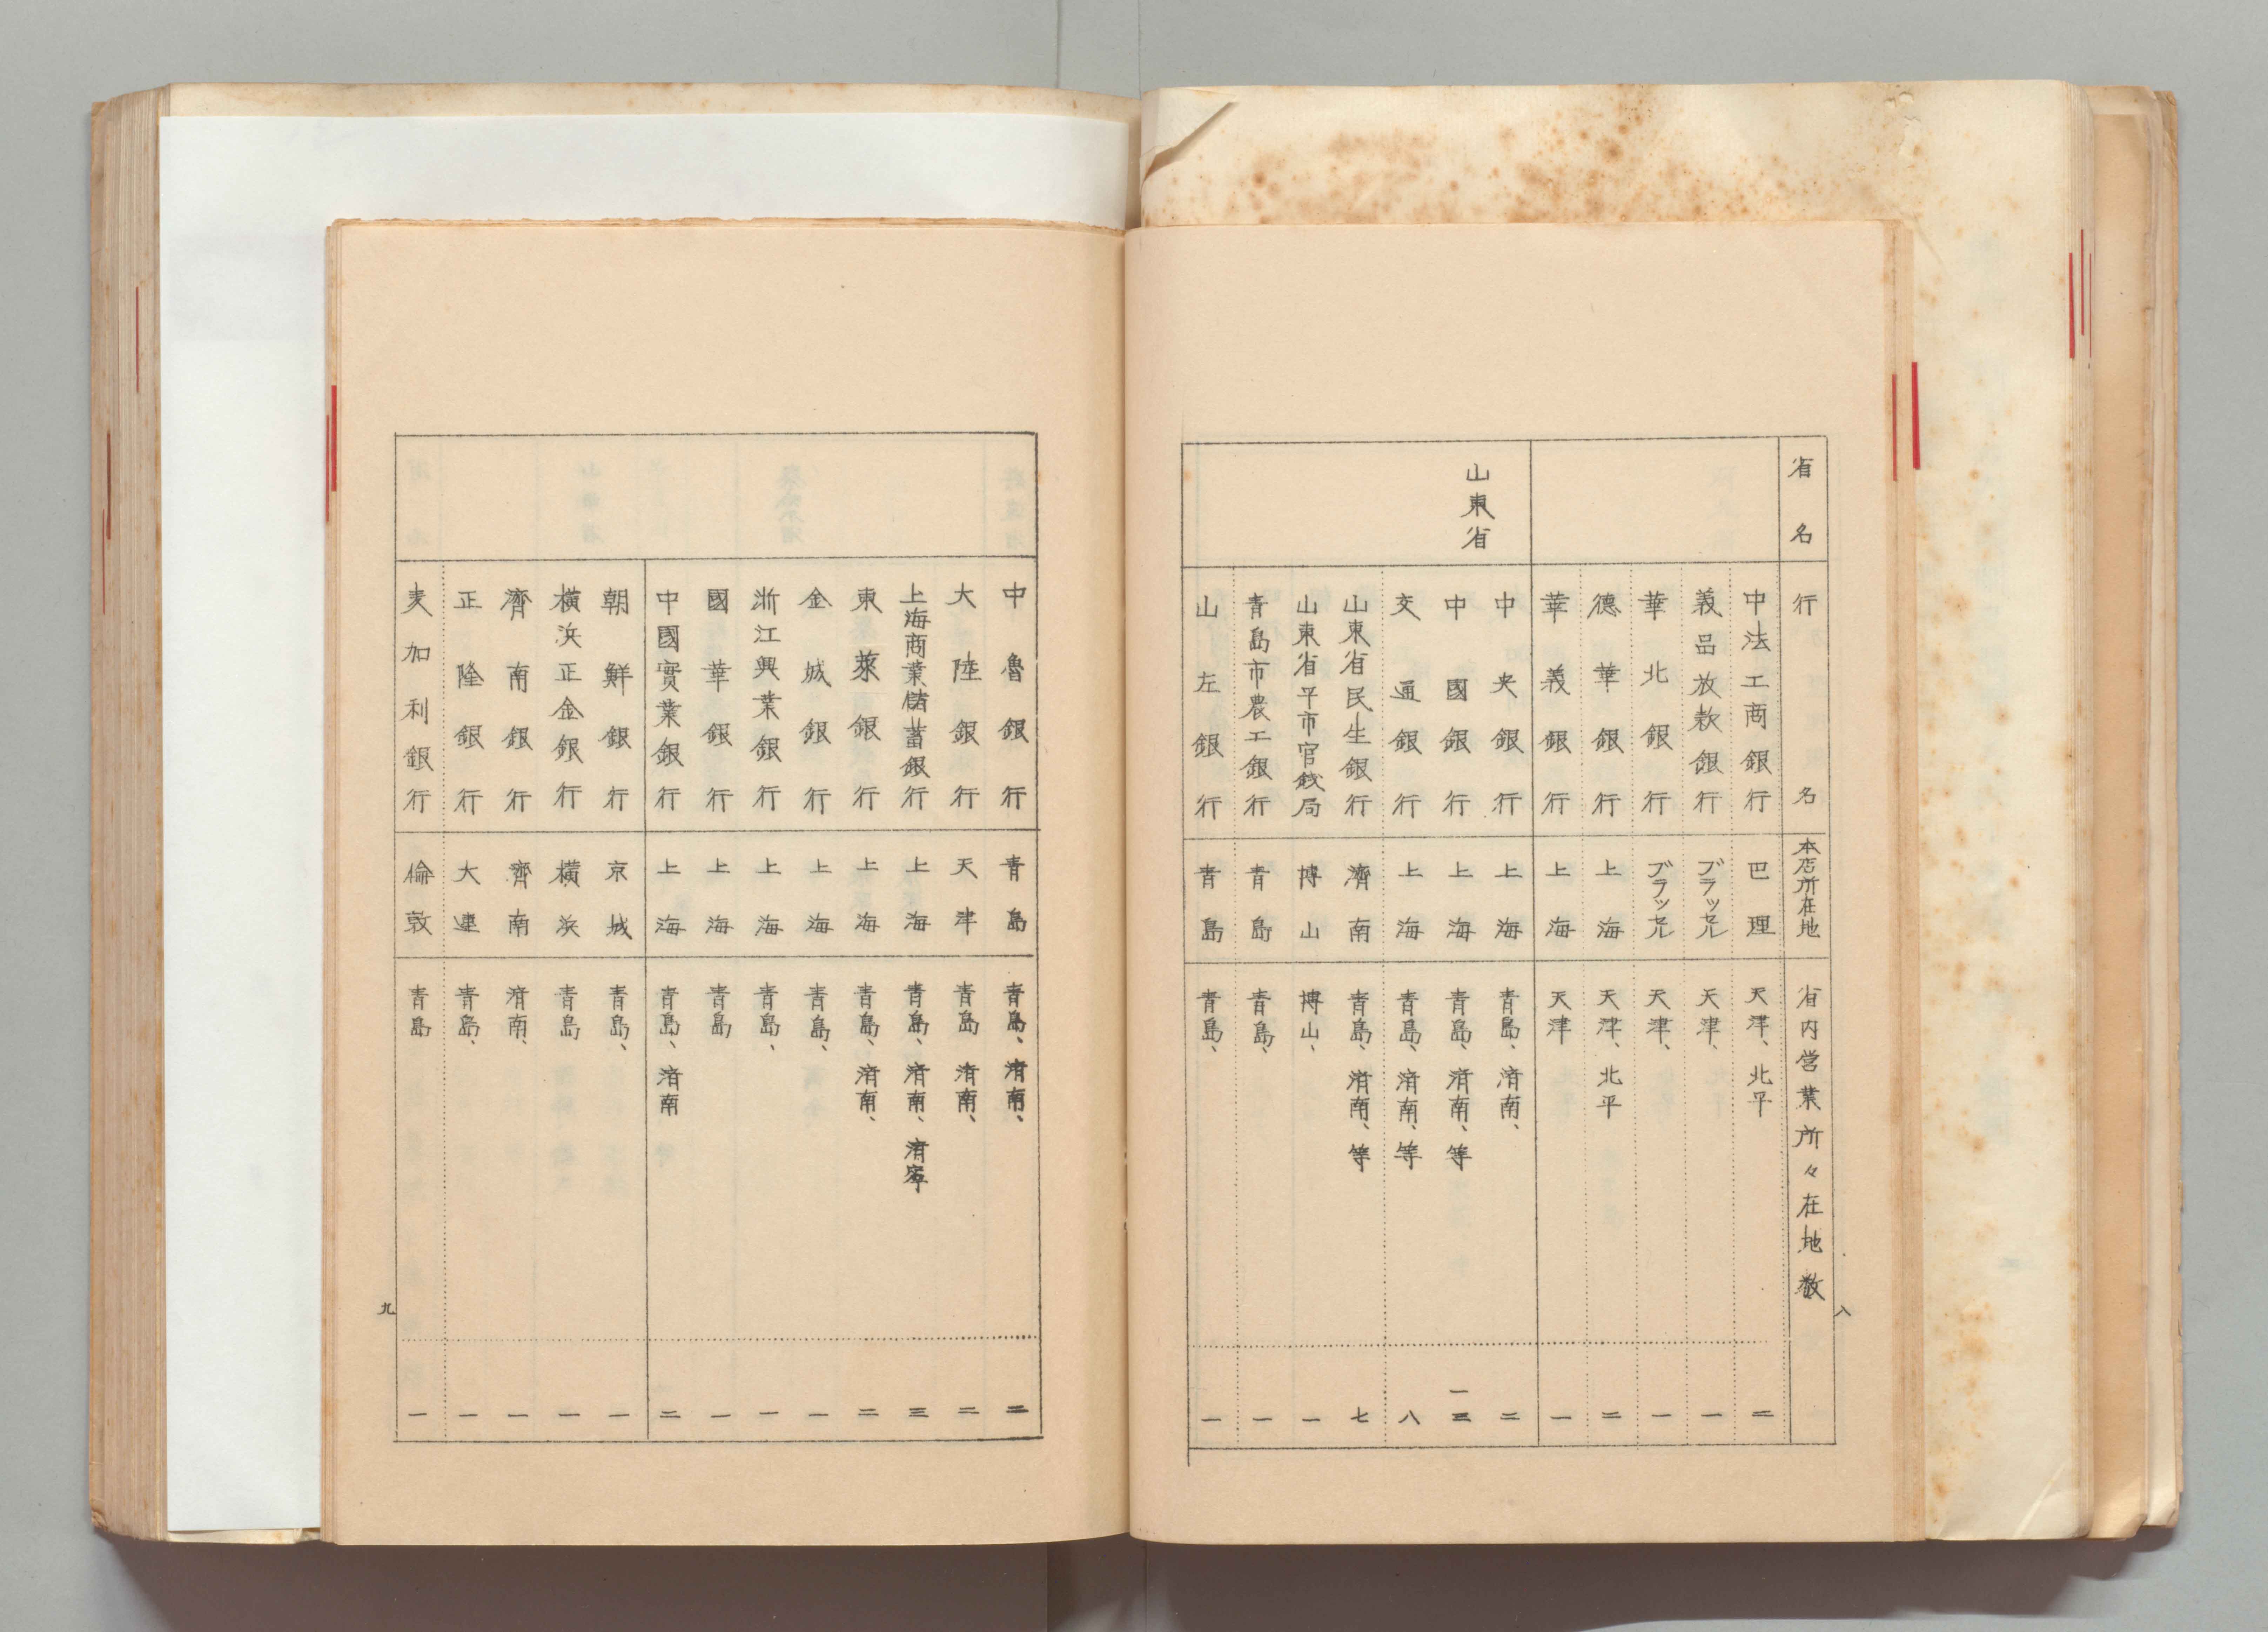 省名 行名 本店所在地 省内営業所々在地数
中法工商銀行 巴理 天津、北平 二
義品放款銀行 ブラッセル 天津、 一
華北銀行 ブラッセル 天津、 一
德華銀行 上海 天津、北平 二
華義銀行 上海 天津 一
山東省 中央銀行 上海 青島、済南、 二
中國銀行 上海 青島、済南、等 一三
交通銀行 上海 青島、済南、等 八
山東省民生銀行 濟南 青島、済南、等 七
山東省平市官銭局 博山 博山、 一
青島市農工銀行 青島 青島、 一
山左銀行 青島 青島、 一
八
中魯銀行 青島 青島、済南、 二
大陸銀行 天津 青島 済南、 二
上海商業儲蓄銀行 上海 青島、済南、済寧 三
東萊銀行 上海 青島、済南、 二
金城銀行 上海 青島、 一
浙江興業銀行 上海 青島、 一
國華銀行 上海 青島 一
中國實業銀行 上海 青島、済南 二
朝鮮銀行 京城 青島、 一
横浜正金銀行 横浜 青島 一
濟南銀行 濟南 済南、 一
正隆銀行 大連 青島、 一
麦加利銀行 倫敦 青島 一
九